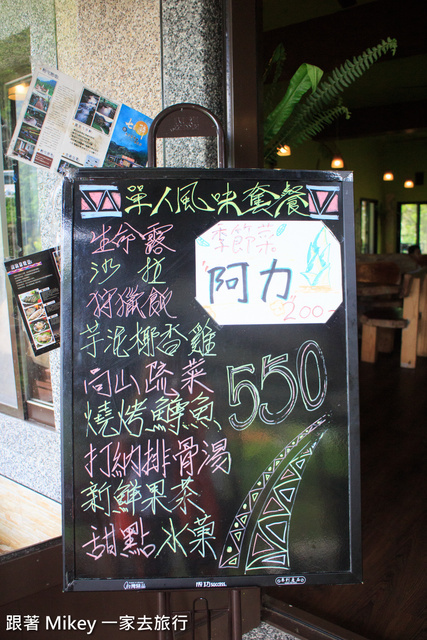 單人風味套餐
生命露
沙拉
狩獵飯
芋泥椰香雞
高山蔬菜
燒烤鱒魚
打納排骨湯
新鮮果茶
甜點 冰菓
季節菜
阿力
200-
550
跟著 MIKEY 一家去旅行